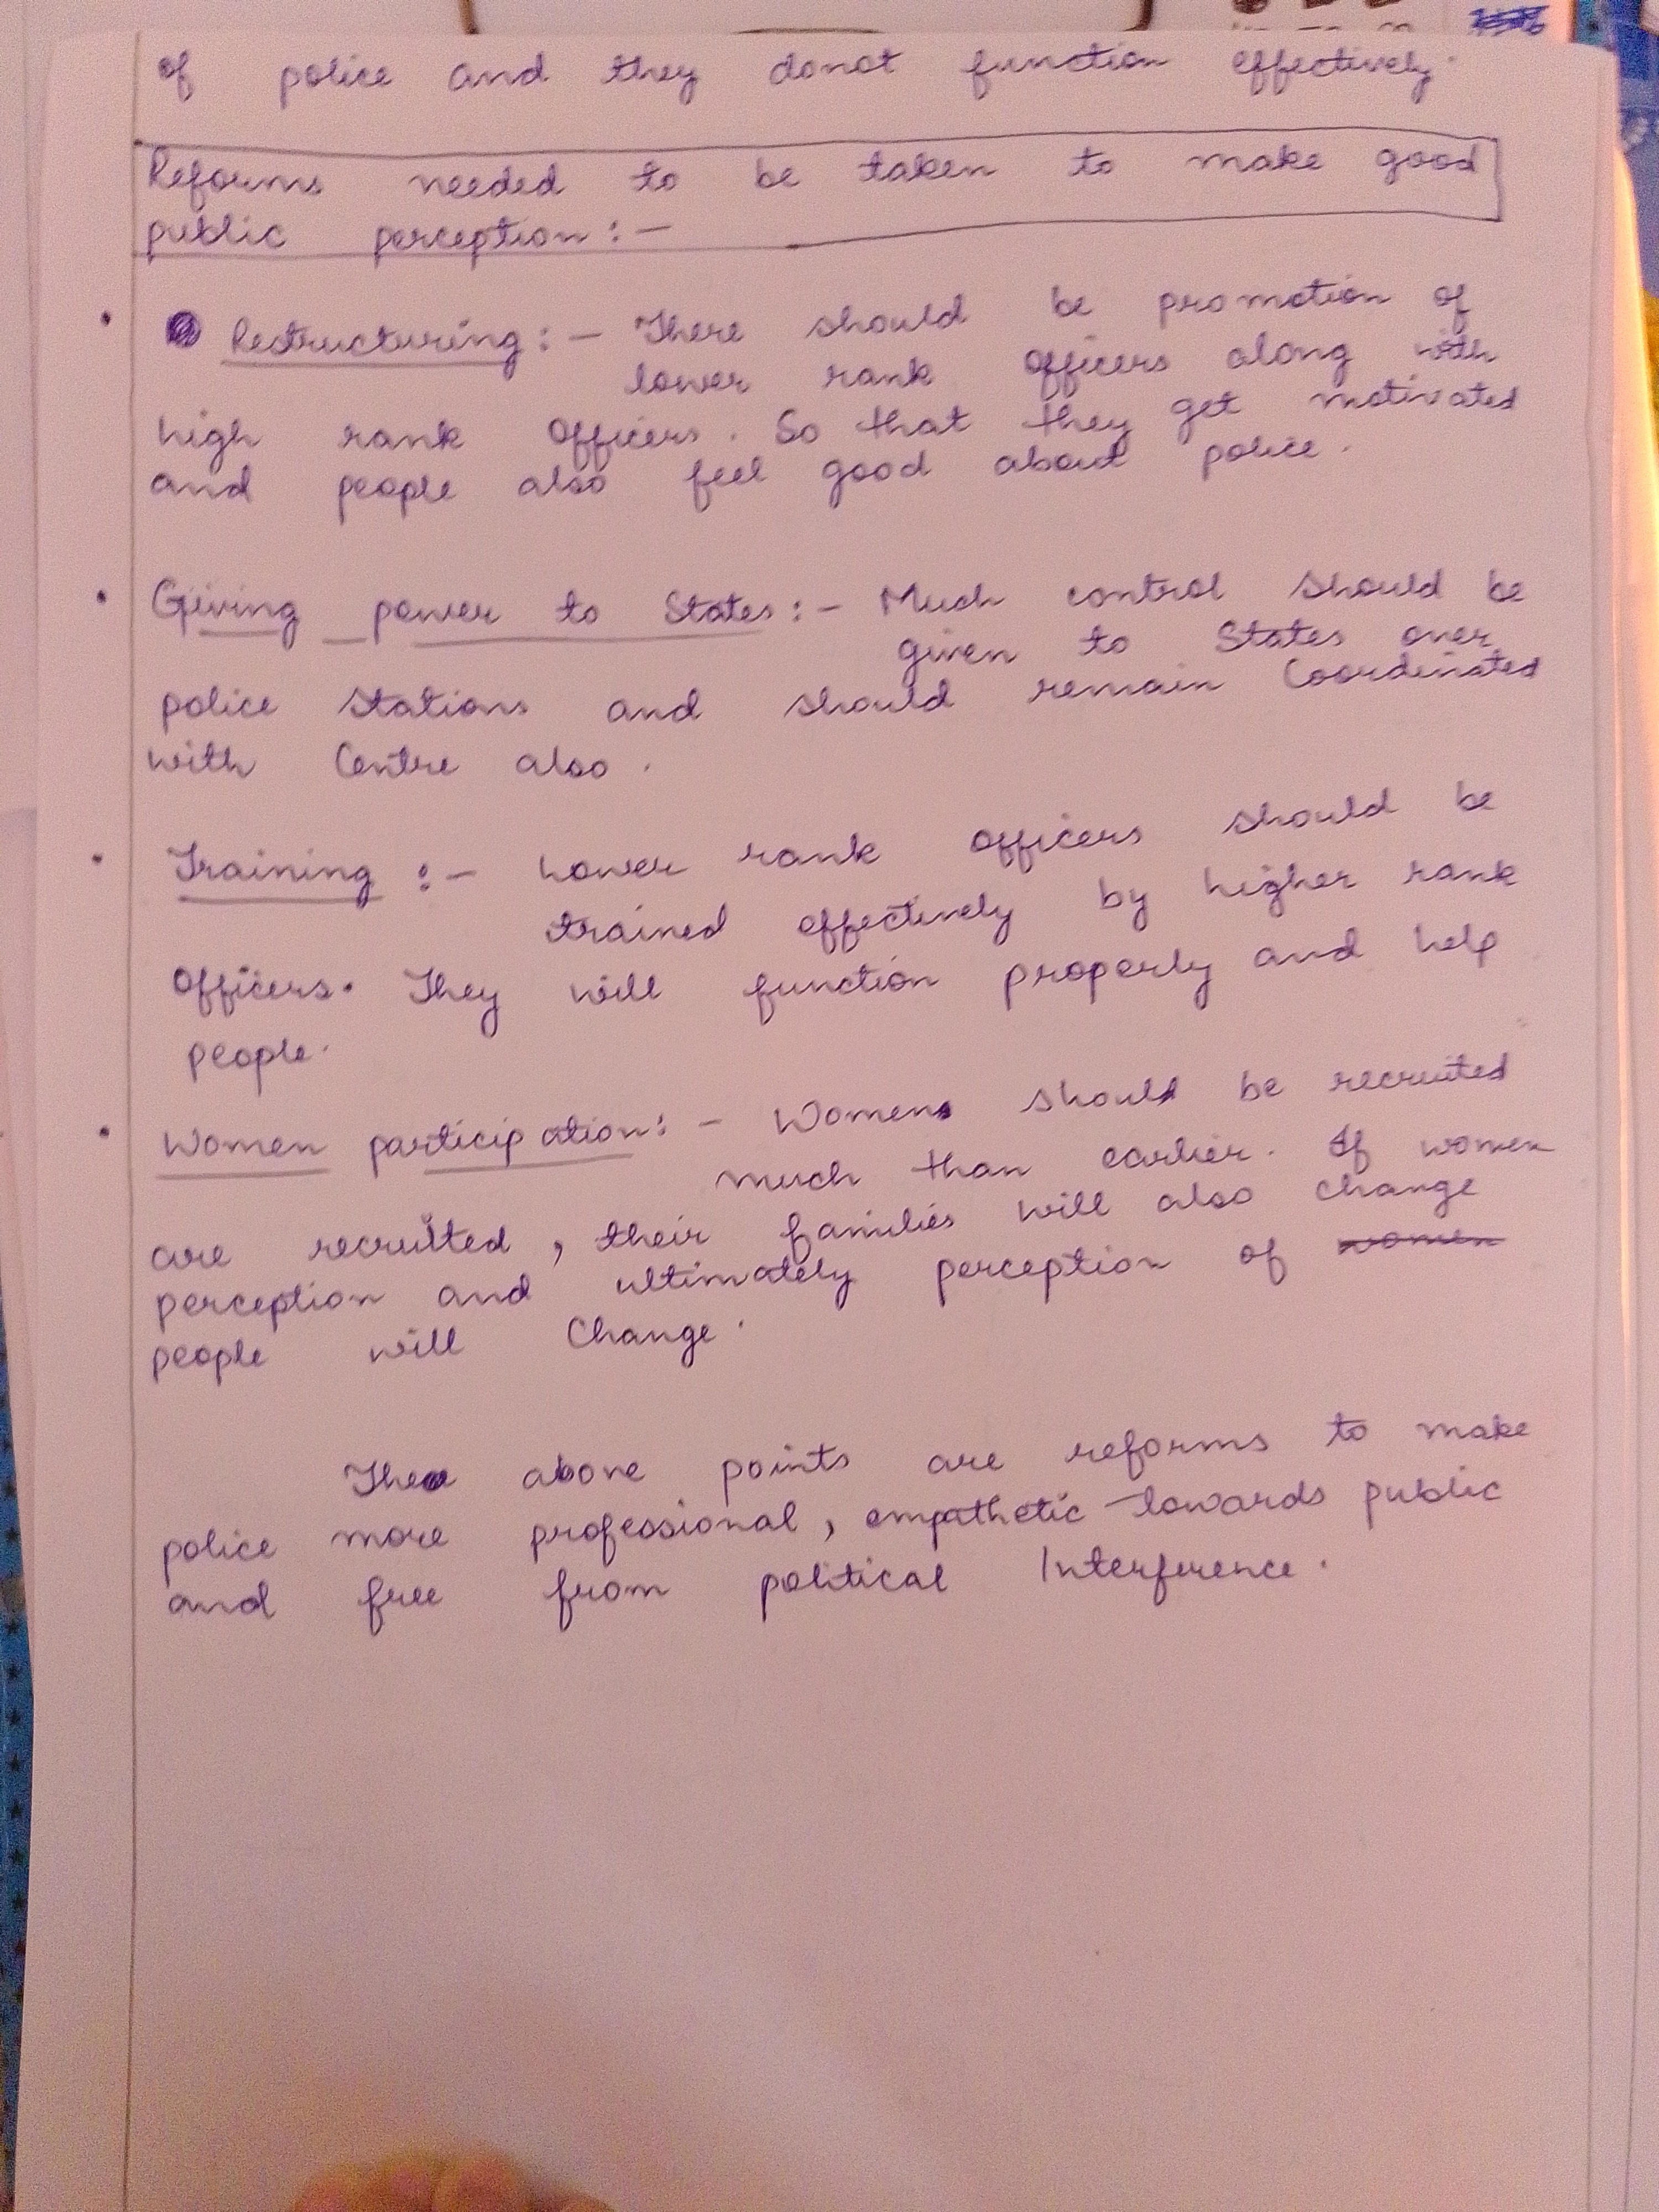 of police and they donot function effectively.
Reforms needed to be taken to make good
public perception :-
Restructuring :- There should be promotion of
lower rank officers along with
high rank officers. So that they get motivated
and people also feel good about police.
Giving power to States :- Much control should be
given to States over
police stations and should remain Coordinated
with Centre also.
Training :- Lower rank officers should be
trained effectively by higher rank
officers. They will function properly and help
people.
Women participation :- Women should be recruited
much than earlier. If women
are recruited, their families will also change
perception and ultimately perception of women
people will Change.
The above points are reforms to make
police more professional, empathetic towards public
and free from political Interference.